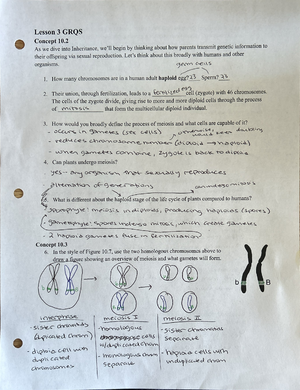 Lesson 3 GRQS
Concept 10.2
As we dive into Inheritance, we'll begin by thinking about how parents transmit genetic information to
their offspring via sexual reproduction. Let's think about this broadly with humans and other
organisms.
germ cells
1. How many chromosomes are in a human adult haploid egg? 23 Sperm? 23
2. Their union, through fertilization, leads to a fertilized egg cell (zygote) with 46 chromosomes.
The cells of the zygote divide, giving rise to more and more diploid cells through the process
of mitosis that form the multicellular diploid individual.
3. How would you broadly define the process of meiosis and what cells are capable of it?
- occurs in gametes (sex cells)
otherwise, would keep doubling
- reduces chromosome number (diploid → haploid)
- when gametes combine, zygote is back to diploid
4. Can plants undergo meiosis?
yes - any organism that sexually reproduces
alternation of generations
5. What is different about the haploid stage of the life cycle of plants compared to humans?
sporophyte: meiosis in diploids producing haploids (spores)
gametophyte: spores undergo mitosis, which create gametes
- 2 haploid gametes fuse in fertilization
Concept 10.3
6. In the style of Figure 10.7, use the two homologous chromosomes above to
draw a figure showing an overview of meiosis and what gametes will form.
b B
interphase
- sister chromatids
(duplicated chrom)
- diploid cell with
duplicated
chromosomes
meiosis I
- homologous
chromosomes
w/ duplicated chrom
- homologous chrom
separate
meiosis II
- sister chromatids
separate
- haploid cells with
unduplicated chrom